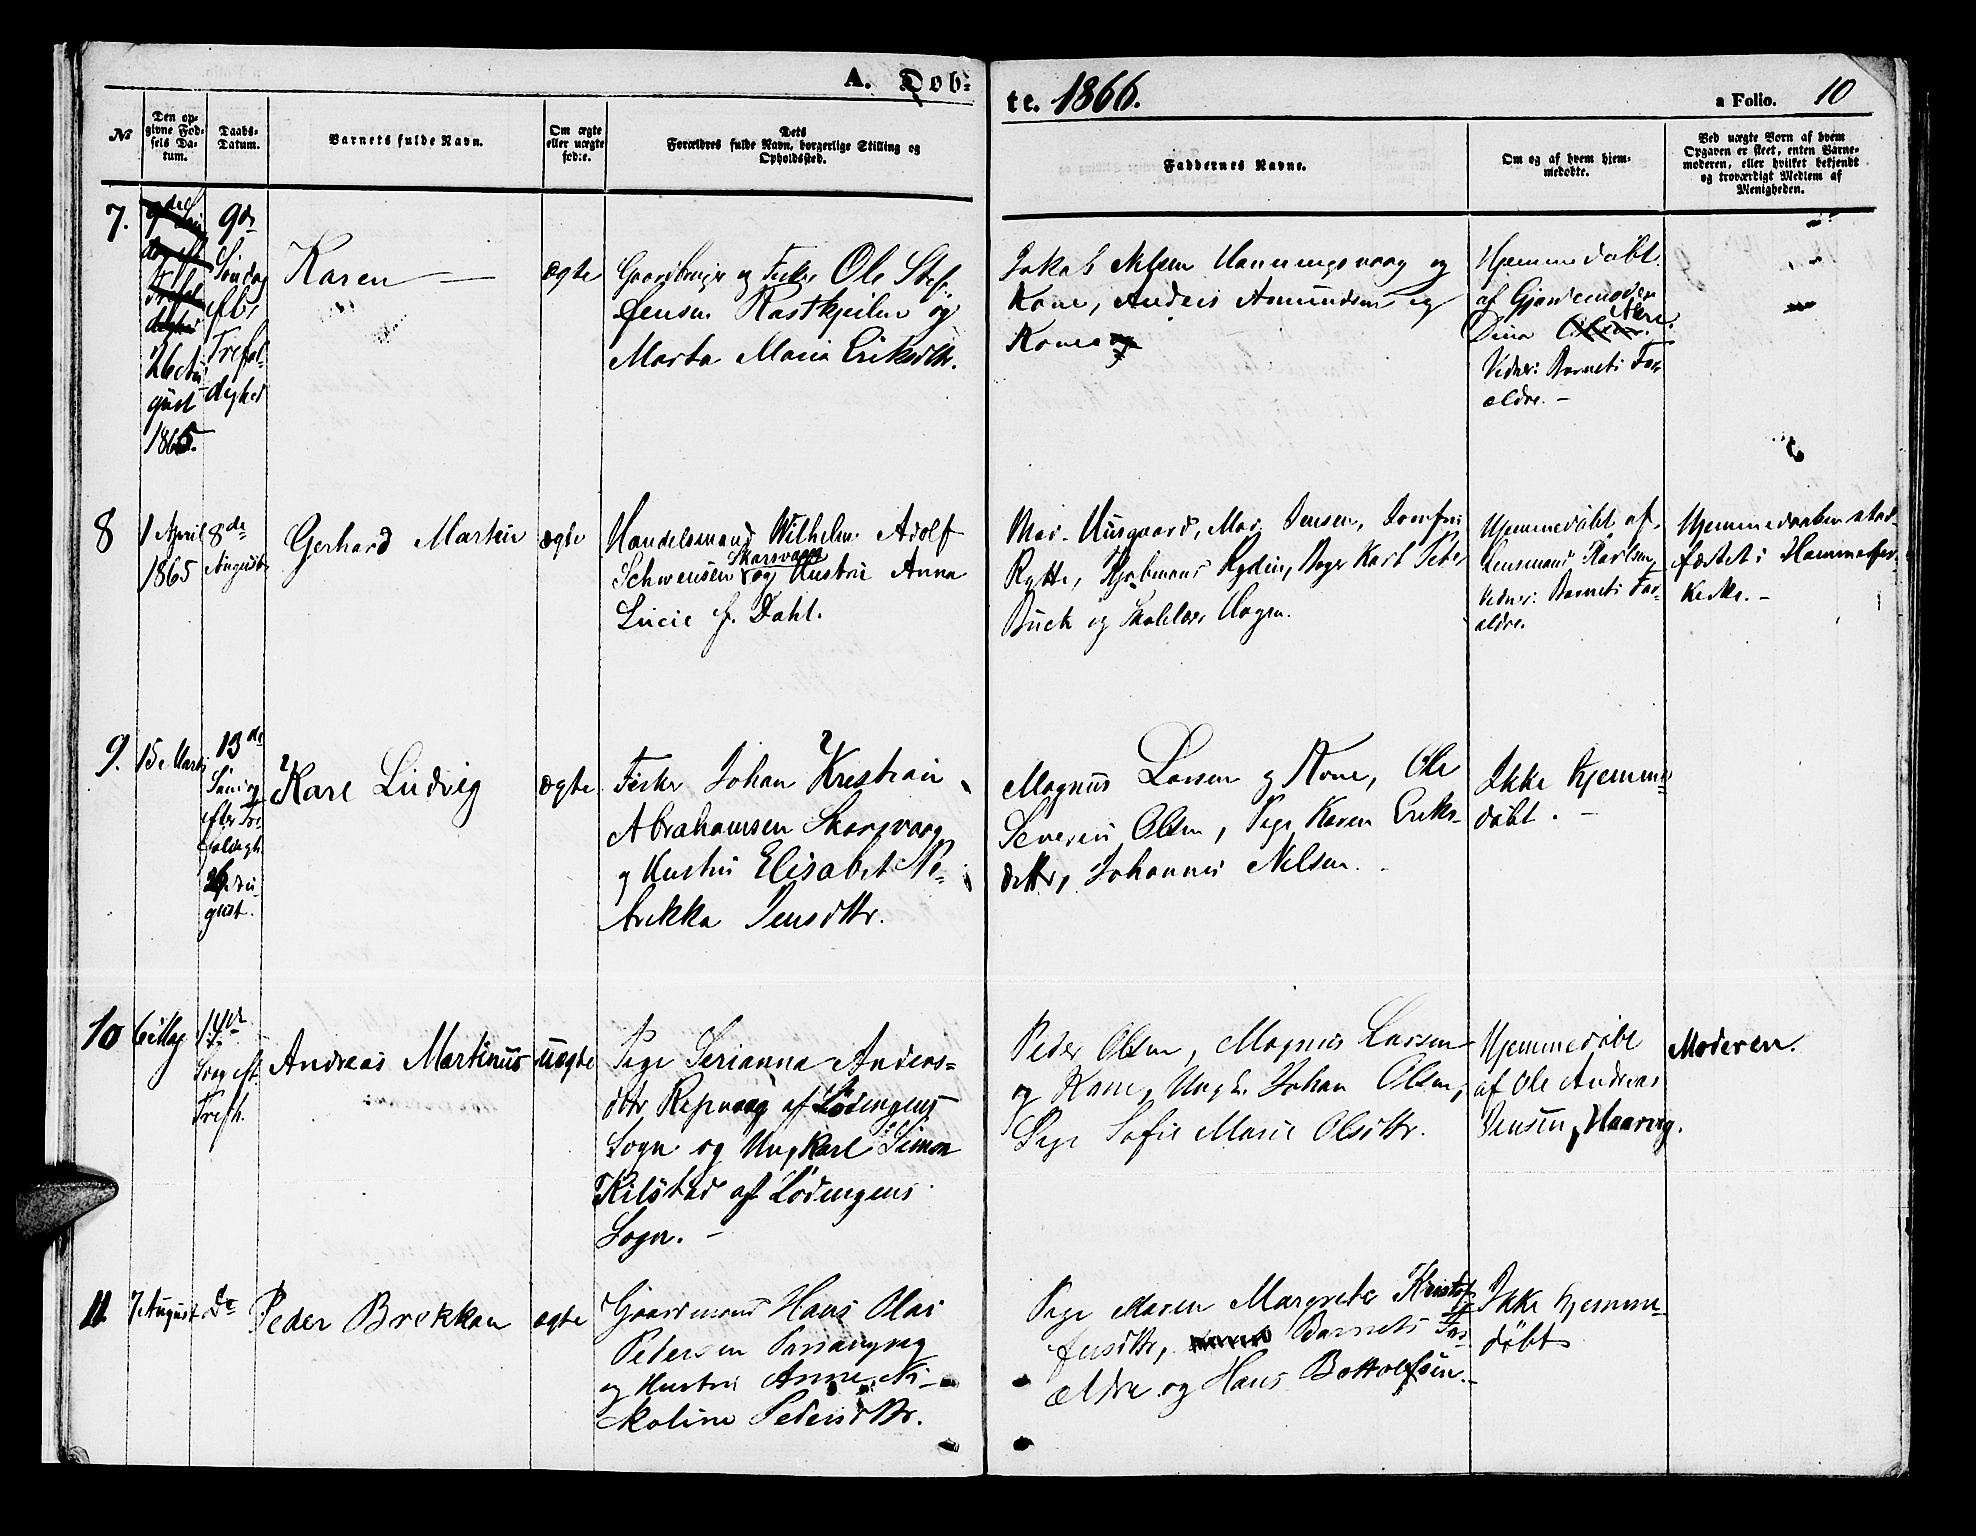 A. Døb-
te. 1866.
a Folio. 10
№
Den op-
givne Fød-
sels Da-
tum.
Daabs-
Datum.
Barnets fulde Navn.
Om ægte
eller uægte
fødte.
Dets
Forældres fulde Navn, borgerlige Stilling og
Opholdssted.
Faddernes Navne.
Om og af hvem hjem-
medøbte.
Ved uægte Børn af hvem
Opgaven er skeet, enten Barne-
moderen, eller hvilket bekjendt
og troværdigt Medlem af
Menigheden.
7.
26 Au-
gust
1865.
9de
Søndag
eft.
Trefol-
dighed
Karen
ægte
Gaardbruger og Fisker Ole Stef-
fensen og
Marta Maria Eriksdtr.
Jakob Nilsen Honningsvaag og
Kone, Anders Amundsen og
Kone
Hjemmedøbt
af Gjordemoder
Dina
Vidner: Barnets For-
ældre. -
8
1 April
1865
8de
August
Gerhard Martin
ægte
Handelsmand Wilhelm Adolf
Skarsvaag
Schwensen og Hustru Anna
Lucie f. Dahl.
Mad. Husgaard, Mad. Jensen, Jomfru
Rytte, Kjøbmand Rydin, Karl Peter
Buck og Hagen.
Hjemmedøbt af
Lensmand Karlsen
Vidner: Barnets For-
ældre.
Hjemmedaaben stad-
fæstet i Hammerfest
Kirke. -
9.
15 Marts
13de
Søndag
efter Tre-
foldigh.
26 Au-
gust.
Karl Ludvig
ægte
Fisker Johan Kristian
Abrahamsen Skarsvaag
og Hustru Elisabet Re-
bekka Jensdtr.
Magnus Larsen og Kone, Ole
Severin Olsen, Pige Karen Eriks-
dttr, Johannes Nilsen.
Ikke hjemme-
døbt. -
10
6 Maj
14de
Sdag eft.
Trefh.
Andreas Martinus
uægte
Pige Serianna Anders-
dttr Repvaag af Lødingens
Sogn og Ungkarl Simon
Kilstad af Lødingens
Sogn. -
Peder Olsen, Magnus Larsen
og Kone, Ungk. Johan Olsen,
Pige Sofie Marie Olsdttr.
Hjemmedøbt
af Ole Andreas
Jensen, Haarvig.
Moderen.
11
7 August
Do
Peder Brekkan
ægte
Gaardmand Hans Olai
Petersen
og Hustru Anne Ni-
koline Pedersdttr.
Pige Maren Margrete Kristof-
fersdttr, Barnets For-
ældre og Hans Bottolfsen. -
Ikke hjemme-
døbt